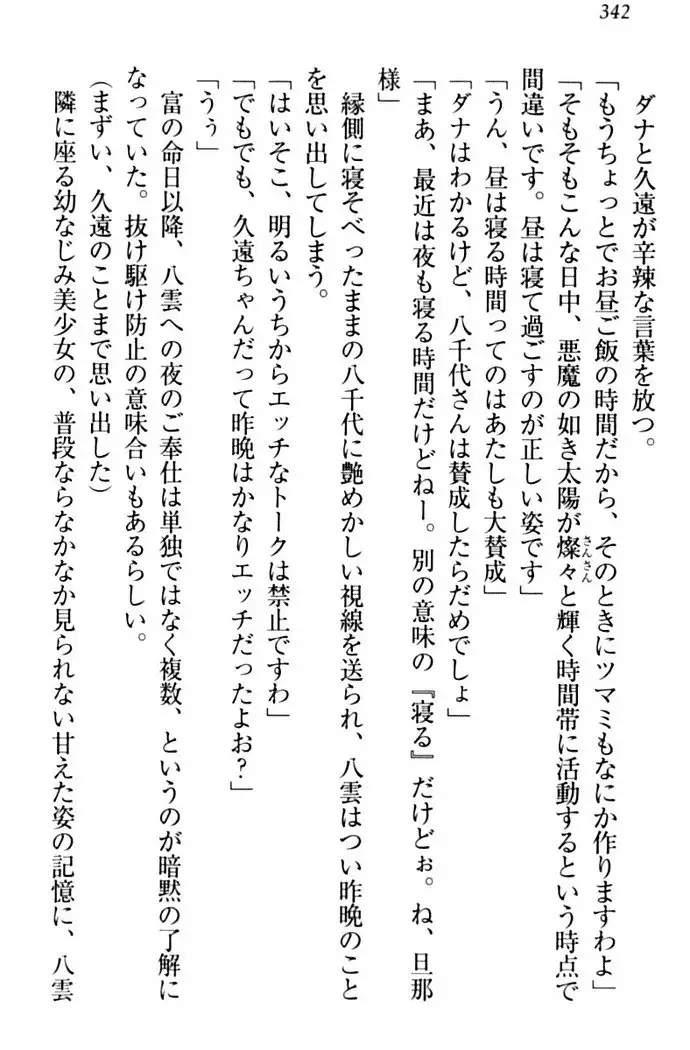 342
ダナと久遠が辛辣な言葉を放つ。
「もうちょっとでお昼ご飯の時間だから、そのときにツマミもなにか作りますわよ」
「そもそもこんな日中、悪魔の如き太陽が燦々と輝く時間帯に活動するという時点で
さんさん
間違いです。昼は寝て過ごすのが正しい姿です」
「うん、昼は寝る時間ってのはあたしも大賛成」
「ダナはわかるけど、八千代さんは賛成したらだめでしょ」
「まあ、最近は夜も寝る時間だけどねー。別の意味の『寝る』だけどぉ。ね、旦那
様」
縁側に寝そべったままの八千代に艶めかしい視線を送られ、八雲はつい昨晩のこと
を思い出してしまう。
「はいそこ、明るいうちからエッチなトークは禁止ですわ」
「でもでも、久遠ちゃんだって昨晩はかなりエッチだったよお？」
「うぅ」
富の命日以降、八雲への夜のご奉仕は単独ではなく複数、というのが暗黙の了解に
なっていた。抜け駆け防止の意味合いもあるらしい。
（まずい、久遠のことまで思い出した）
隣に座る幼なじみ美少女の、普段ならなかなか見られない甘えた姿の記憶に、八雲